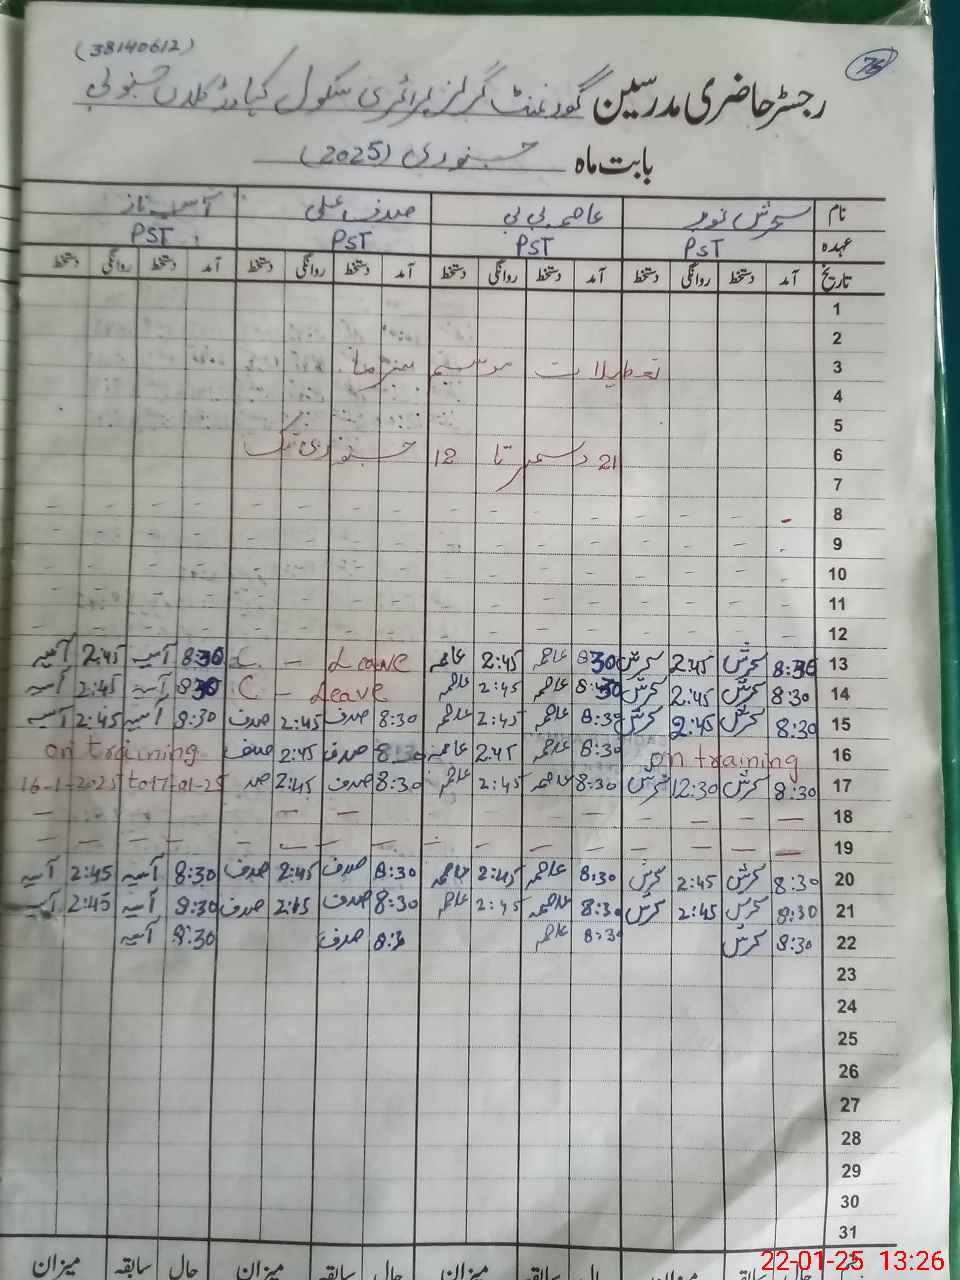 (38140612)
76
رجسٹر حاضری مدرسین گورنمنٹ گرلز پرائمری سکول کیا دڑ کلاں جنوبی
بابت ماہ جنوری (2025)
نام سحرش نور عاصمہ بی بی صدف علی آسیہ ناز
عہدہ PST PST PST PST
تاریخ آمد دستخط روانگی دستخط آمد دستخط روانگی دستخط آمد دستخط روانگی دستخط آمد دستخط روانگی دستخط
1
2
3 تعطیلات موسم سرما
4
5
6 21 دسمبر تا 12 جنوری تک
7
8
9
10
11
12
13 8:30 سحرش 2:45 سحرش 8:30 عاصمہ 2:45 عاصمہ C - Leave 8:30 آسیہ 2:45 آسیہ
14 8:30 سحرش 2:45 سحرش 8:30 عاصمہ 2:45 عاصمہ C - Leave 8:30 آسیہ 2:45 آسیہ
15 8:30 سحرش 2:45 سحرش 8:30 عاصمہ 2:45 عاصمہ 8:30 صدف 2:45 صدف 8:30 آسیہ 2:45 آسیہ
16 on training 8:30 عاصمہ 2:45 عاصمہ 8:30 صدف 2:45 صدف on training
17 8:30 سحرش 12:30 سحرش 8:30 عاصمہ 2:45 عاصمہ 8:30 صدف 2:45 صد 16-1-2025 to 17-01-25
18
19
20 8:30 سحرش 2:45 سحرش 8:30 عاصمہ 2:45 عاصمہ 8:30 صدف 2:45 صدف 8:30 آسیہ 2:45 آسیہ
21 8:30 سحرش 2:45 سحرش 8:30 عاصمہ 2:45 عاصمہ 8:30 صدف 2:45 صدف 8:30 آسیہ 2:45 آسیہ
22 8:30 سحرش 8:30 عاصمہ 8:3 صدف 8:30 آسیہ
23
24
25
26
27
28
29
30
31
حال سابقہ میزان حال سابقہ میزان حال سابقہ میزان
22-01-25 13:26